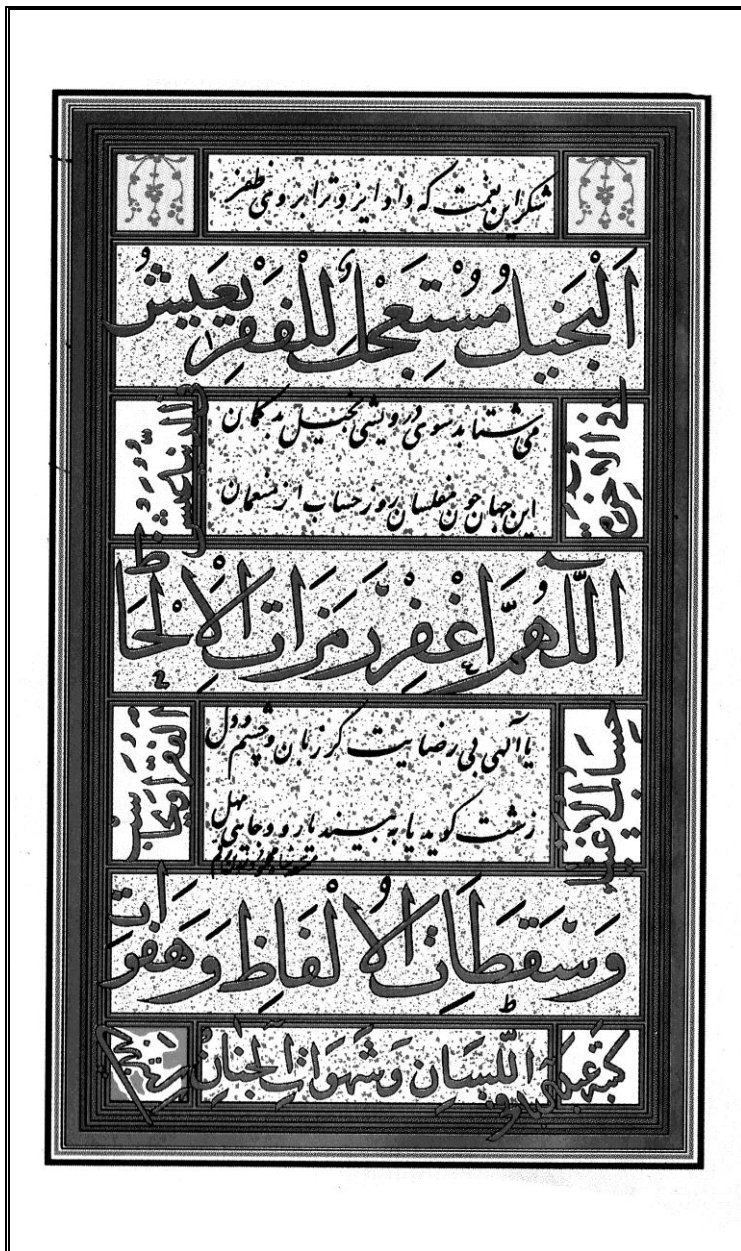 شکر این نعمت که داد ایزد ترا بر وی ظفر
اَلْبَخیلُ مُسْتَعْجِلُ لِلْفَقْرِ یَعیشُ
فی الدنیا عیش
می شتابد سوی درویشی بخیل بدگمان
این جهان چون مفلسان روز حساب از منعمان
فی الاخرة
اَللّهُمَّ اغْفِرْ رَمَزاتِ الْاَلْحاظِ
الفقراء و یحاسب
یا آلهی بی رضایت گر زبان و چشم و دل
زشت گوید یا به بیند یا رود جایی مهل
حساب الاغنیاء
وَسَقَطاتِ الْاَلْفاظِ وَهَفَواتِ
اللِّسانِ وَشَهَواتِ الْجَنانِ
کتبه عبدالباقی